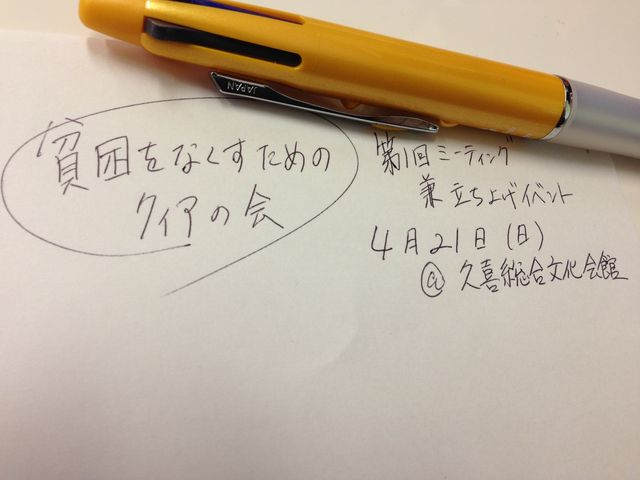 JAPAN
貧困をなくすための
クィアの会
第1回ミーティング
兼立ちよげイベント
4月21日(日)
@久喜総合文化会館